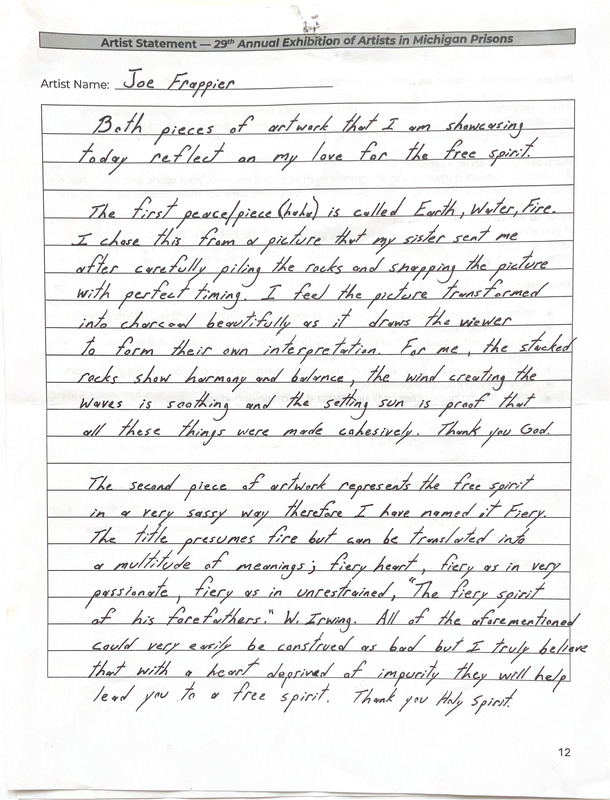 Artist Statement — 29th Annual Exhibition of Artists in Michigan Prisons
Artist Name: Joe Frappier
Both pieces of artwork that I am showcasing
today reflect on my love for the free spirit.
The first peace/piece (haha) is called Earth, Water, Fire.
I chose this from a picture that my sister sent me
after carefully piling the rocks and snapping the picture
with perfect timing. I feel the picture transformed
into charcoal beautifully as it draws the viewer
to form their own interpretation. For me, the stacked
rocks show harmony and balance, the wind creating the
waves is soothing and the setting sun is proof that
all these things were made cohesively. Thank you God.
The second piece of artwork represents the free spirit
in a very sassy way therefore I have named it Fiery.
The title presumes fire but can be translated into
a multitude of meanings; fiery heart, fiery as in very
passionate, fiery as in unrestrained, "The fiery spirit
of his forefathers." W. Irwing. All of the aforementioned
could very easily be construed as bad but I truly believe
that with a heart deprived of impurity they will help
lead you to a free spirit. Thank you Holy Spirit.
12